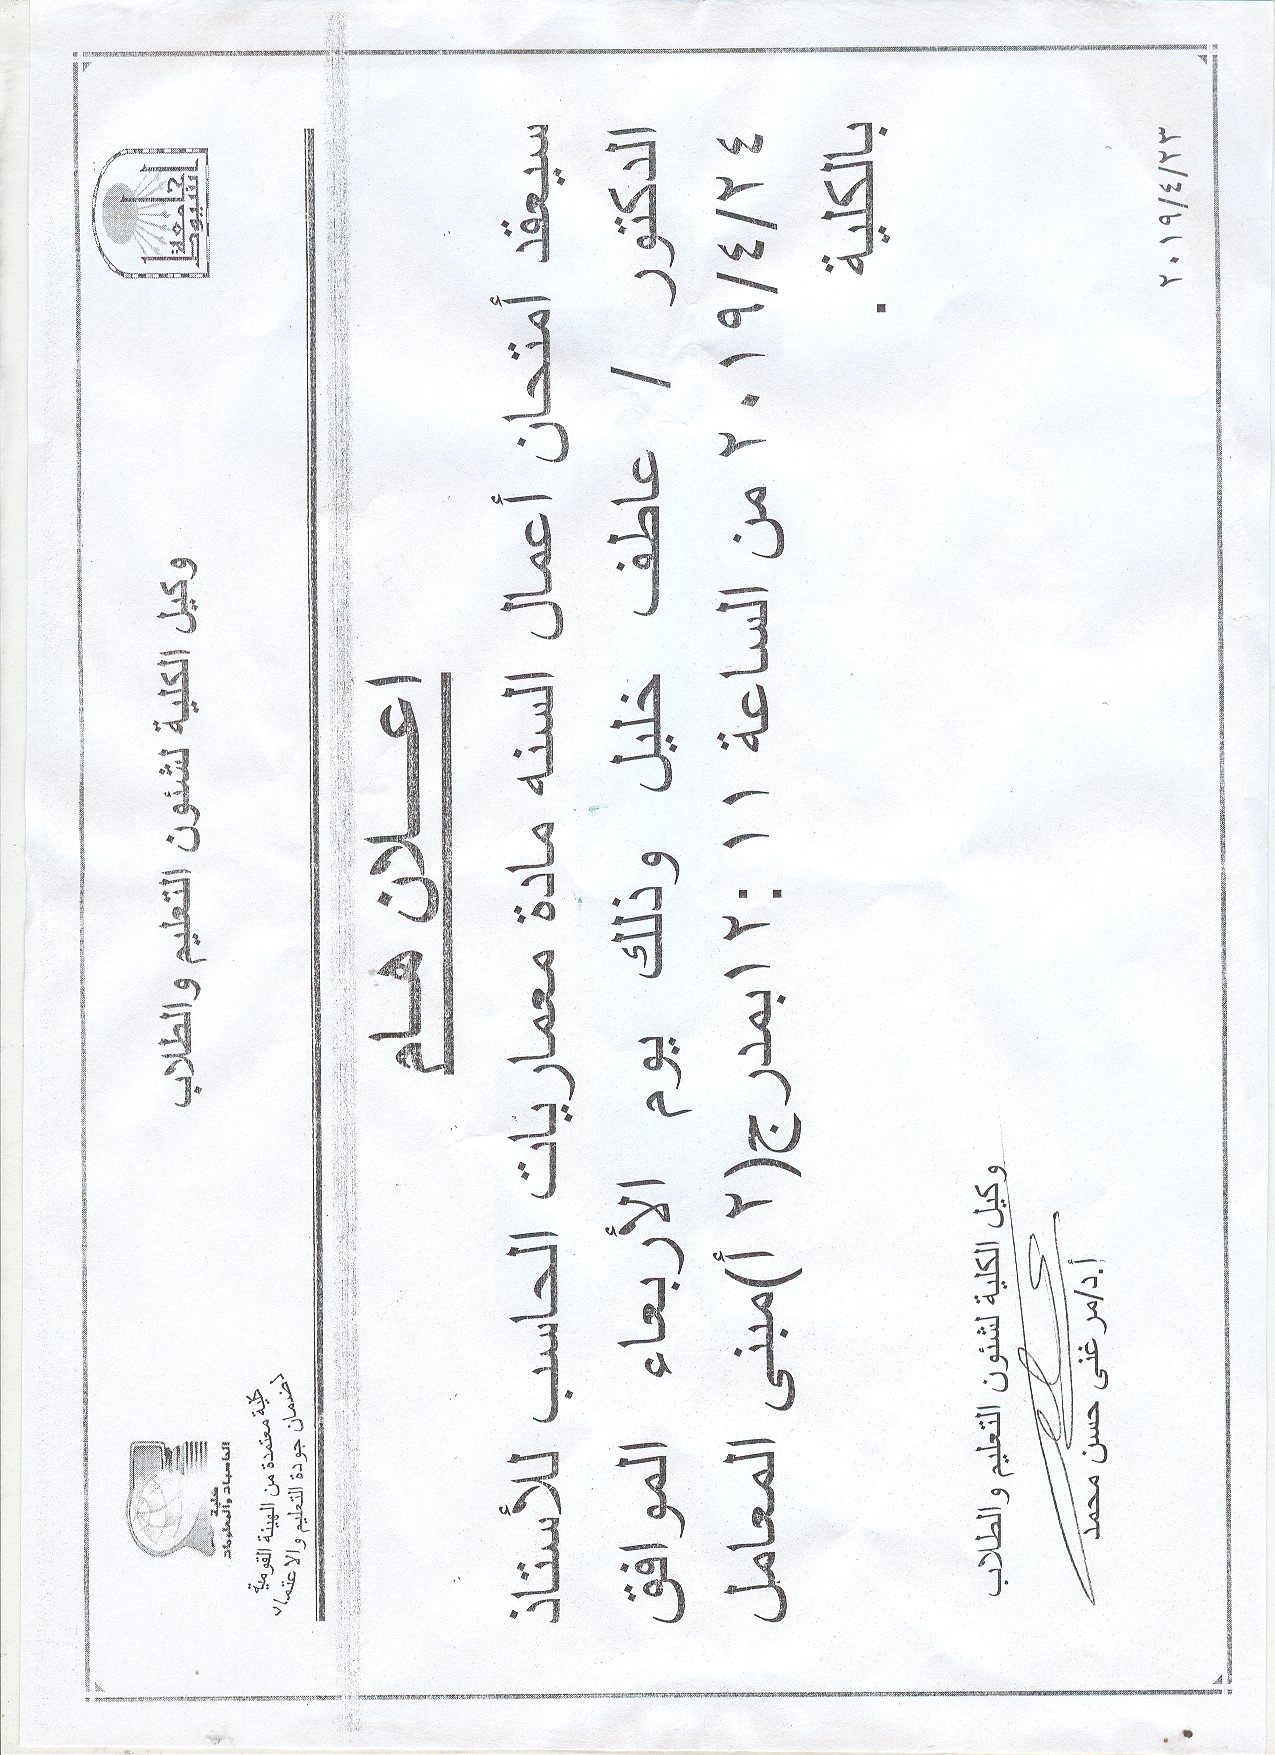 جامعة
أسيوط
وكيل الكلية لشئون التعليم والطلاب
كلية
الحاسبات والمعلومات
كلية معتمدة من الهيئة القومية
لضمان جودة التعليم والاعتماد
اعلان هام
سيعقد أمتحان أعمال السنه مادة معماريات الحاسب للأستاذ
الدكتور / عاطف خليل وذلك يوم الأربعاء الموافق
٢٠١٩/٤/٢٤ من الساعة ١١ : ١٢ بمدرج(٢ أ)مبنى المعامل
بالكلية .
وكيل الكلية لشئون التعليم والطلاب
أ.د/مرغنى حسن محمد
٢٠١٩/٤/٢٣